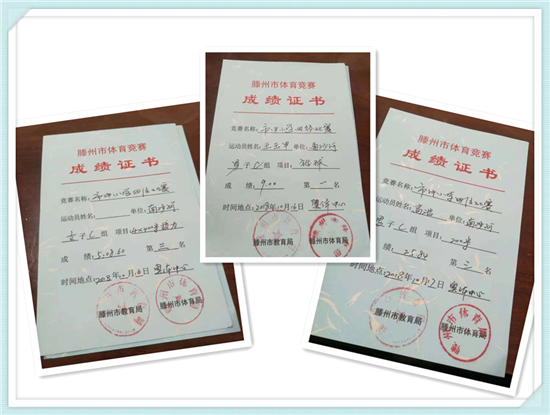 滕州市体育竞赛
成绩证书
竞赛名称:市中小学田径比赛
运动员姓名: 单位:南沙河
子C组 项目:4×200米接力
成 绩:5:03.60 第 三 名
时间地点:2018年10月16日 奥体中心
滕州市教育局 滕州市体育局
滕州市体育竞赛
成绩证书
竞赛名称:市中小学田径比赛
运动员姓名: 单位:南沙河
男子C组 项目:铅球
成 绩:9.00 第 一 名
时间地点:2018年10月16日 奥体中心
滕州市教育局 滕州市体育局
滕州市体育竞赛
成绩证书
竞赛名称:市中小学田径比赛
运动员姓名: 单位:南沙河
男子C组 项目:200米
成 绩: 第 三 名
时间地点:2018年10月17日 奥体中心
滕州市教育局 滕州市体育局